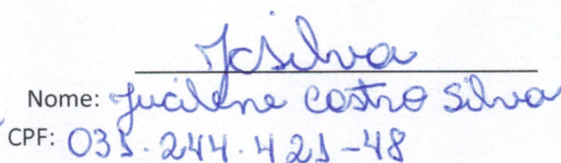 JcSilva
Nome: Jucilene Castro Silva
CPF: 031.244.421-48